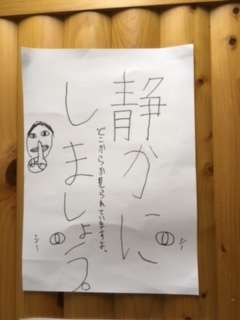 静かに
しましょう。
どこからか見られていますよ。
シー
シー